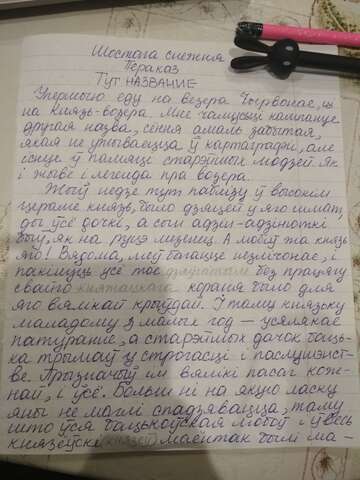 Шостага снежня
Пераказ
Тут НАЗВАНИЕ
Упершыню еду на возера Чырвонае, ці
на Князь-возера. Мне чамусьці
другая назва, сёння амаль забытая,
якая не ўжываецца ў картаграфіі, але
існуе ў памяці старэйшых людзей. Як
і жыве і легенда пра возера.
Жыў недзе тут паблізу ў высокім
цераме князь, было дзяцей у яго шмат,
ды ўсё дочкі, а сын адзін-адзіноткі
быў, як на руцэ мезенец. А любіў жа князь
яго! Вядома, меў багацце незлічонае, і
пакінуць усё тое без працягу
свайго княжацкага кораня было для
яго вялікай крыўдай. І таму князьку
маладому з малых год — усялякае
патуранне, а старэйшых дачок баць-
ка трымаў у строгасці і паслушэнст-
ве. Прызначыў ім вялікі пасаг кож-
най, і ўсё. Больш ні на якую ласку
яны не маглі спадзявацца, таму
што ўся бацькоўская любоў і ўвесь
князеўскі маёнтак былі ма-